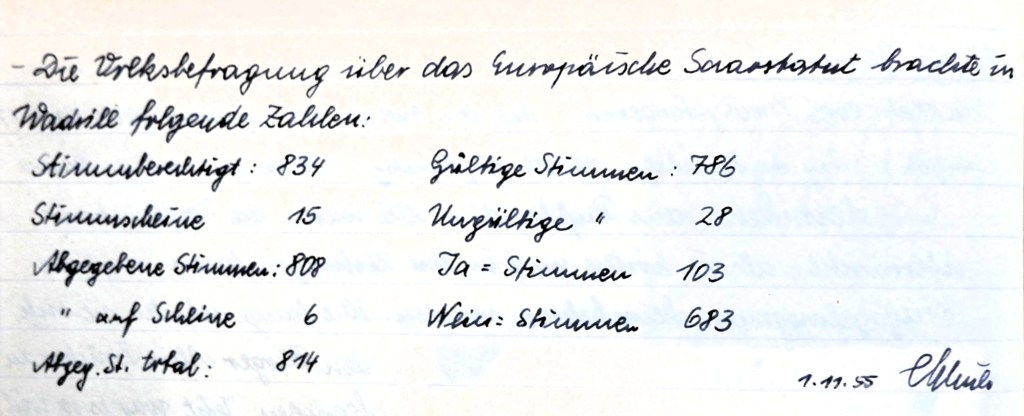 - Die Volksbefragung über das Europäische Saarstatut brachte in
Wadrill folgende Zahlen:
Stimmberechtigt: 834 Gültige Stimmen: 786
Stimmscheine 15 Ungültige " 28
Abgegebene Stimmen: 808 Ja = Stimmen 103
" auf Scheine 6 Nein = Stimmen 683
Abgeg. St. total: 814
1.11.55